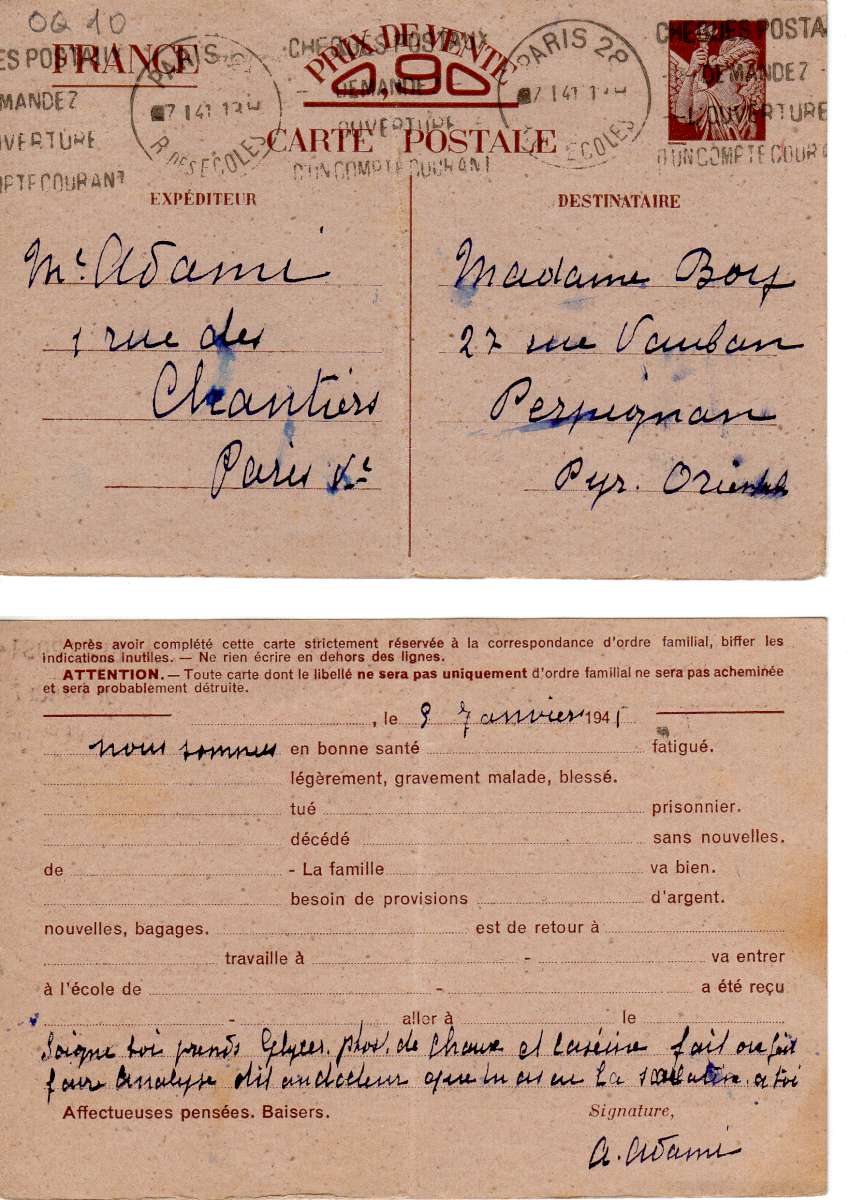 OG 10
FRANCE
PRIX DE VENTE
0,90
CARTE POSTALE
PARIS
7 I 41
R. DES ECOLES
CHEQUES POSTAUX
DEMANDEZ
L'OUVERTURE
D'UN COMPTE COURANT
PARIS 28
7 I 41
ECOLES
CHEQUES POSTA
DEMANDEZ
L'OUVERTURE
D'UN COMPTE COURA
ES POSTAUX
MANDEZ
UVERTURE
MPTE COURANT
EXPÉDITEUR
Mr Adami
1 rue des
Chantiers
Paris Ve
DESTINATAIRE
Madame Boy
27 rue Vauban
Perpignan
Pyr. Orientales
Après avoir complété cette carte strictement réservée à la correspondance d'ordre familial, biffer les
indications inutiles. — Ne rien écrire en dehors des lignes.
ATTENTION. — Toute carte dont le libellé ne sera pas uniquement d'ordre familial ne sera pas acheminée
et sera probablement détruite.
, le Janvier 1941
nous sommes en bonne santé fatigué.
légèrement, gravement malade, blessé.
tué prisonnier.
décédé sans nouvelles.
de - La famille va bien.
besoin de provisions d'argent.
nouvelles, bagages. est de retour à
travaille à - va entrer
à l'école de - a été reçu
- aller à le
Soigne toi prends Glycer. phos. de Chaux et Caséine fait ou
faire Analyse dit au docteur que tu as eu la a toi
Affectueuses pensées. Baisers. Signature,
A. Adami